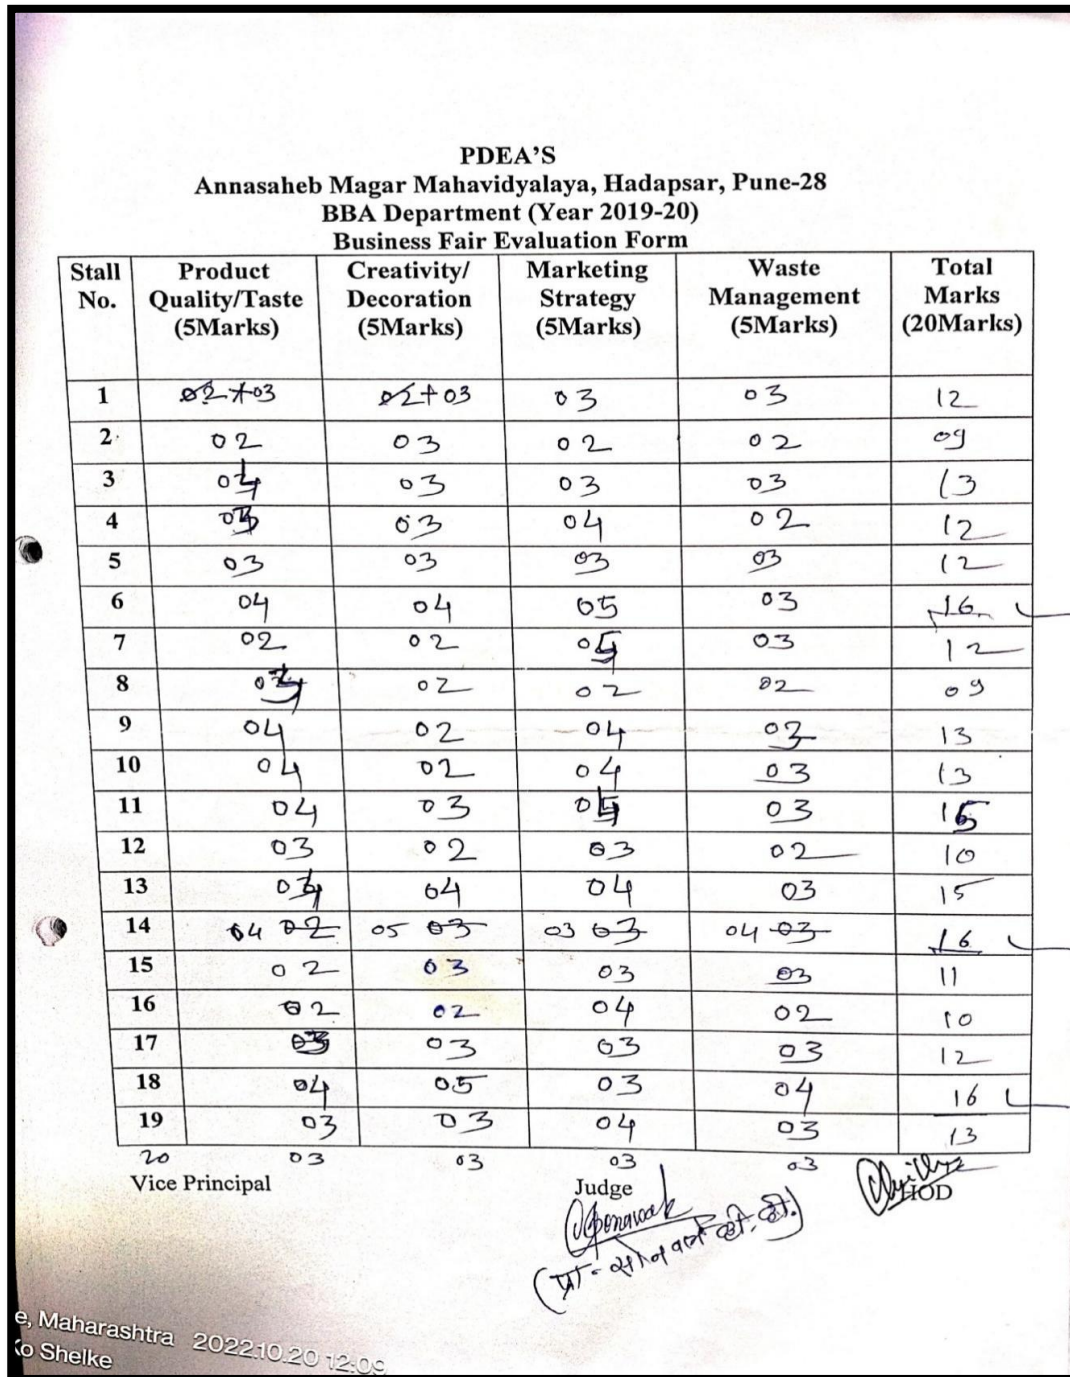 PDEA'S
Annasaheb Magar Mahavidyalaya, Hadapsar, Pune-28
BBA Department (Year 2019-20)
Business Fair Evaluation Form
Stall No. Product Quality/Taste (5Marks) Creativity/ Decoration (5Marks) Marketing Strategy (5Marks) Waste Management (5Marks) Total Marks (20Marks)
1 02+03 02+03 03 03 12
2 02 03 02 02 09
3 04 03 03 03 13
4 03 03 04 02 12
5 03 03 03 03 12
6 04 04 05 03 16
7 02 02 05 03 12
8 03 02 02 02 09
9 04 02 04 03 13
10 04 02 04 03 13
11 04 03 05 03 15
12 03 02 03 02 10
13 04 04 04 03 15
14 04 02 05 03 03 03 04 03 16
15 02 03 03 03 11
16 02 02 04 02 10
17 03 03 03 03 12
18 04 05 03 04 16
19 03 03 04 03 13
20 03 03 03 03
Vice Principal Judge HOD
e, Maharashtra 2022.10.20 12:09
Ko Shelke